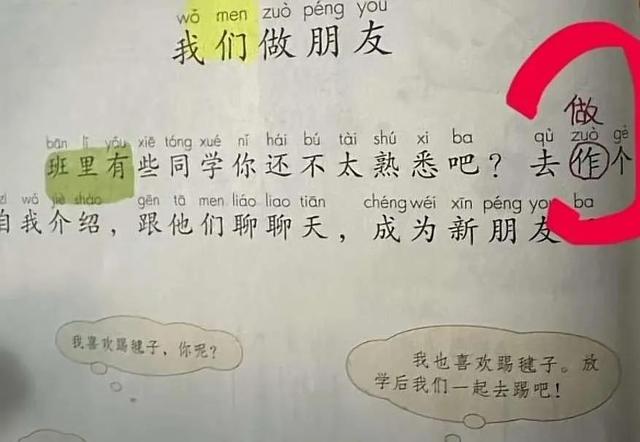 wǒ men zuò péng you
我们做朋友
做
bān li yǒu xiē tóng xué nǐ hái bú tài shú xi ba qù zuò gè
班里有些同学你还不太熟悉吧？去作个
zì wǒ jiè shào gēn tā men liáo liao tiān chéng wéi xīn péng you ba
自我介绍，跟他们聊聊天，成为新朋友
我喜欢踢毽子，你呢？
我也喜欢踢毽子。放
学后我们一起去踢吧！